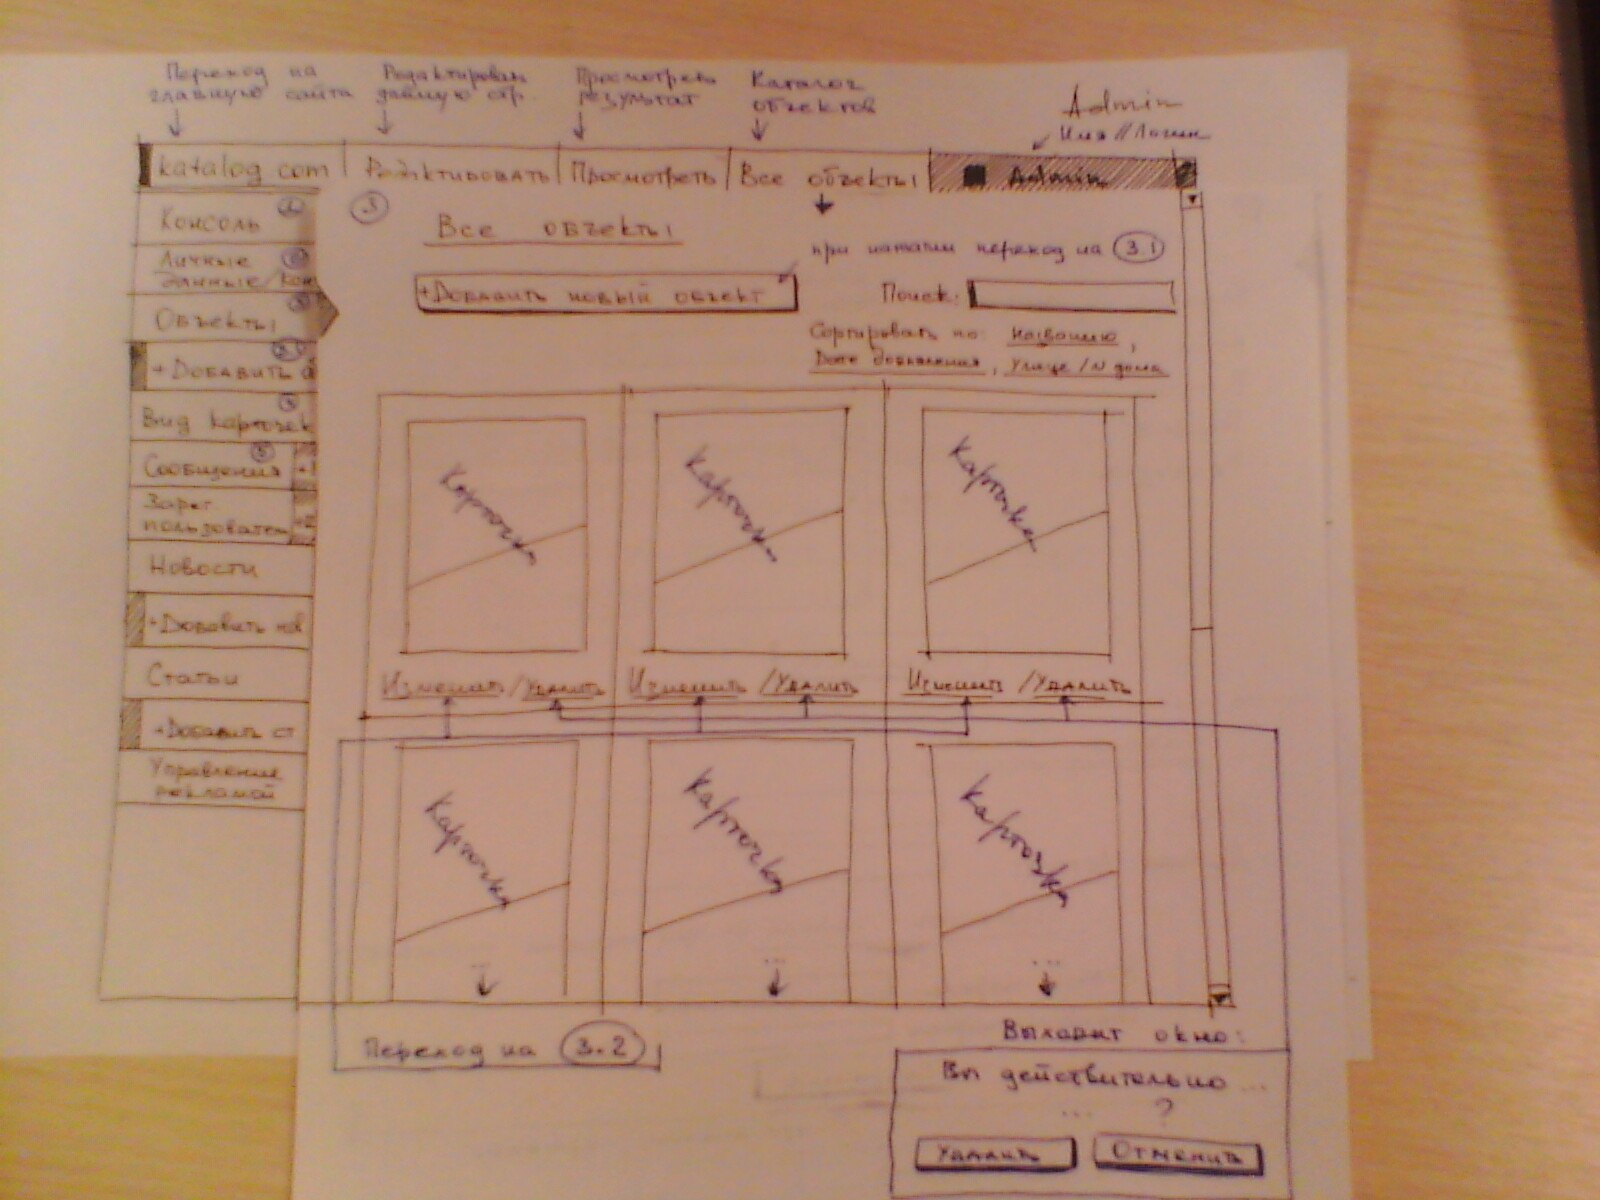 Переход на
главную сайта
Редактирован
данную стр.
Просмотреть
результат
Каталог
объектов
Admin
Имя // Логин
katalog com
Редактировать
Просмотреть
Все объекты
Admin
Консоль
Личные
данные/кон
Объекты
+ Добавить
Вид карточек
Сообщения
Зарег.
пользовател
Новости
+ Добавить нов
Статьи
+ Добавить ст
Управление
рекламой
3
Все объекты
при нажатии переход на 3.1
+ Добавить новый объект
Поиск:
Сортировать по: названию,
Дате добавления, Улице / N дома
Карточка
Карточка
Карточка
Изменить / Удалить
Изменить / Удалить
Изменить / Удалить
Карточка
Карточка
Карточка
...
...
...
Переход на 3.2
Вылазит окно:
Вы действительно ...
... ?
Удалить
Отменить